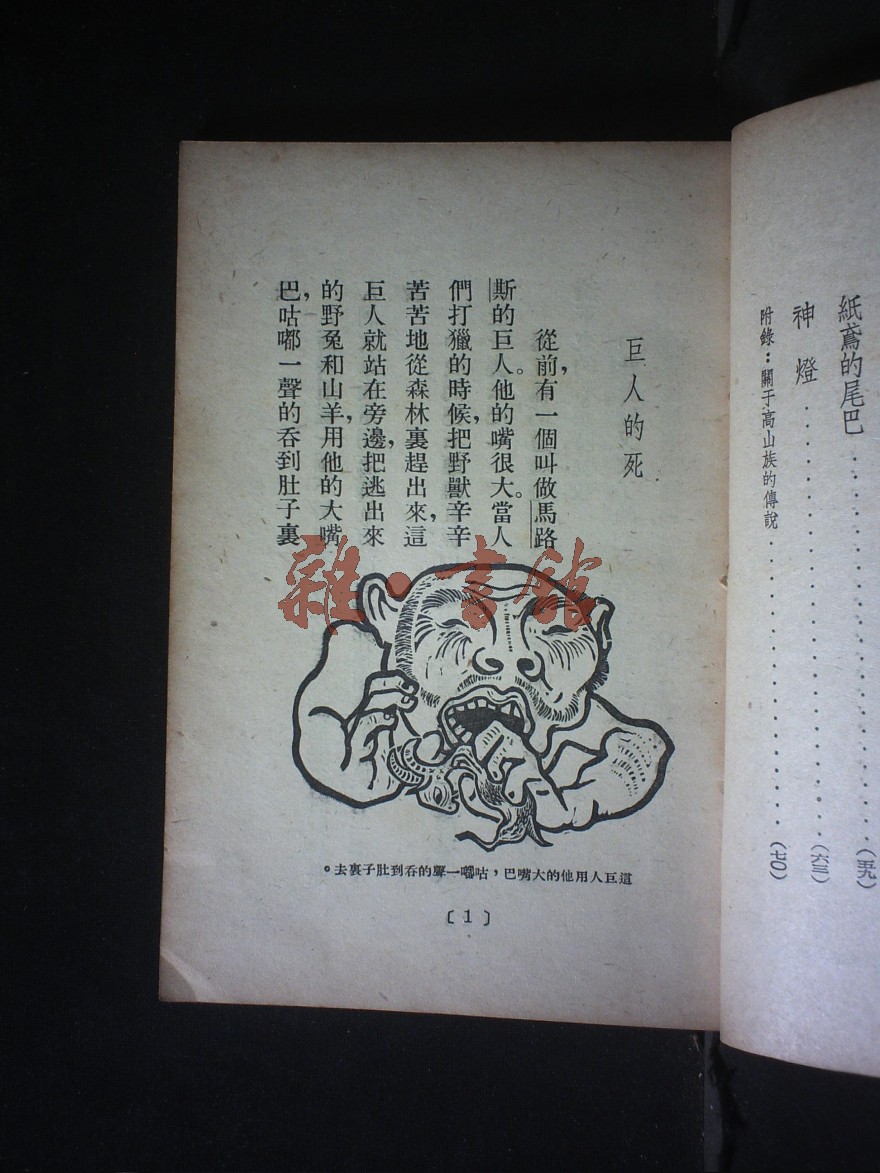 紙鳶的尾巴 . . . . . . . . . . . . . . . . (五九)
神燈 . . . . . . . . . . . . . . . . . . . . (六三)
附錄：關于高山族的傳說 . . . . . . . . . . . . (七〇)
巨人的死
從前，有一個叫做馬路
斯的巨人。他的嘴很大。當人
們打獵的時候，把野獸辛辛
苦苦地從森林裏趕出來，這
巨人就站在旁邊，把逃出來
的野兔和山羊，用他的大嘴
巴，咕嘟一聲的吞到肚子裏
雜·書館
這巨人用他的大嘴巴，咕嘟一聲的吞到肚子裏去。
〔1〕